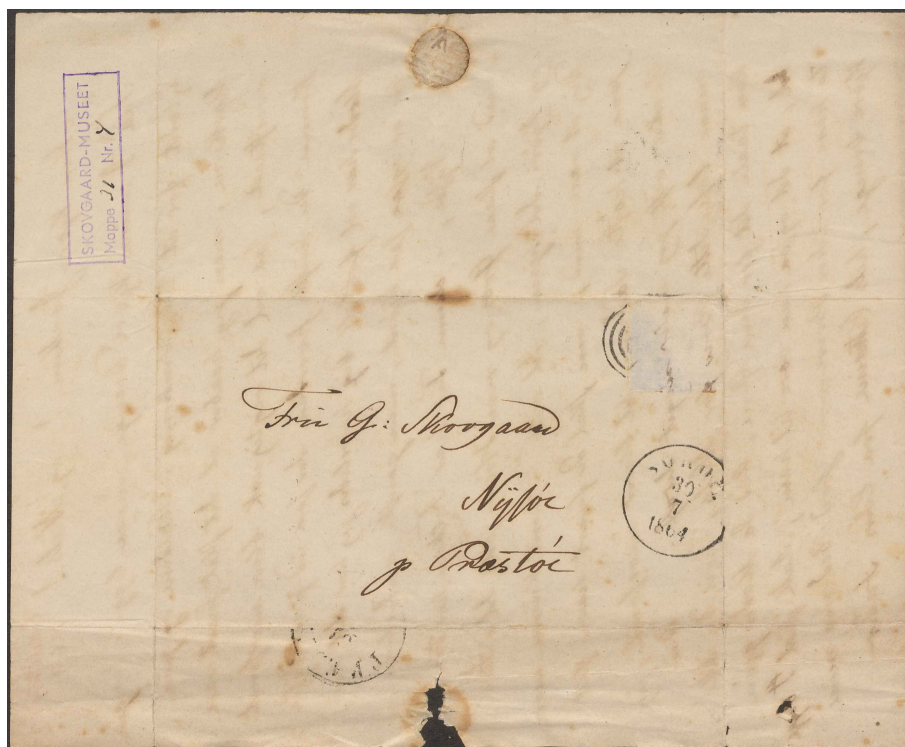 SKOVGAARD-MUSEET
Mappe 31 Nr. 4
Fru G: Skovgaard
Nysøe
p Præstøe
30
7
1864